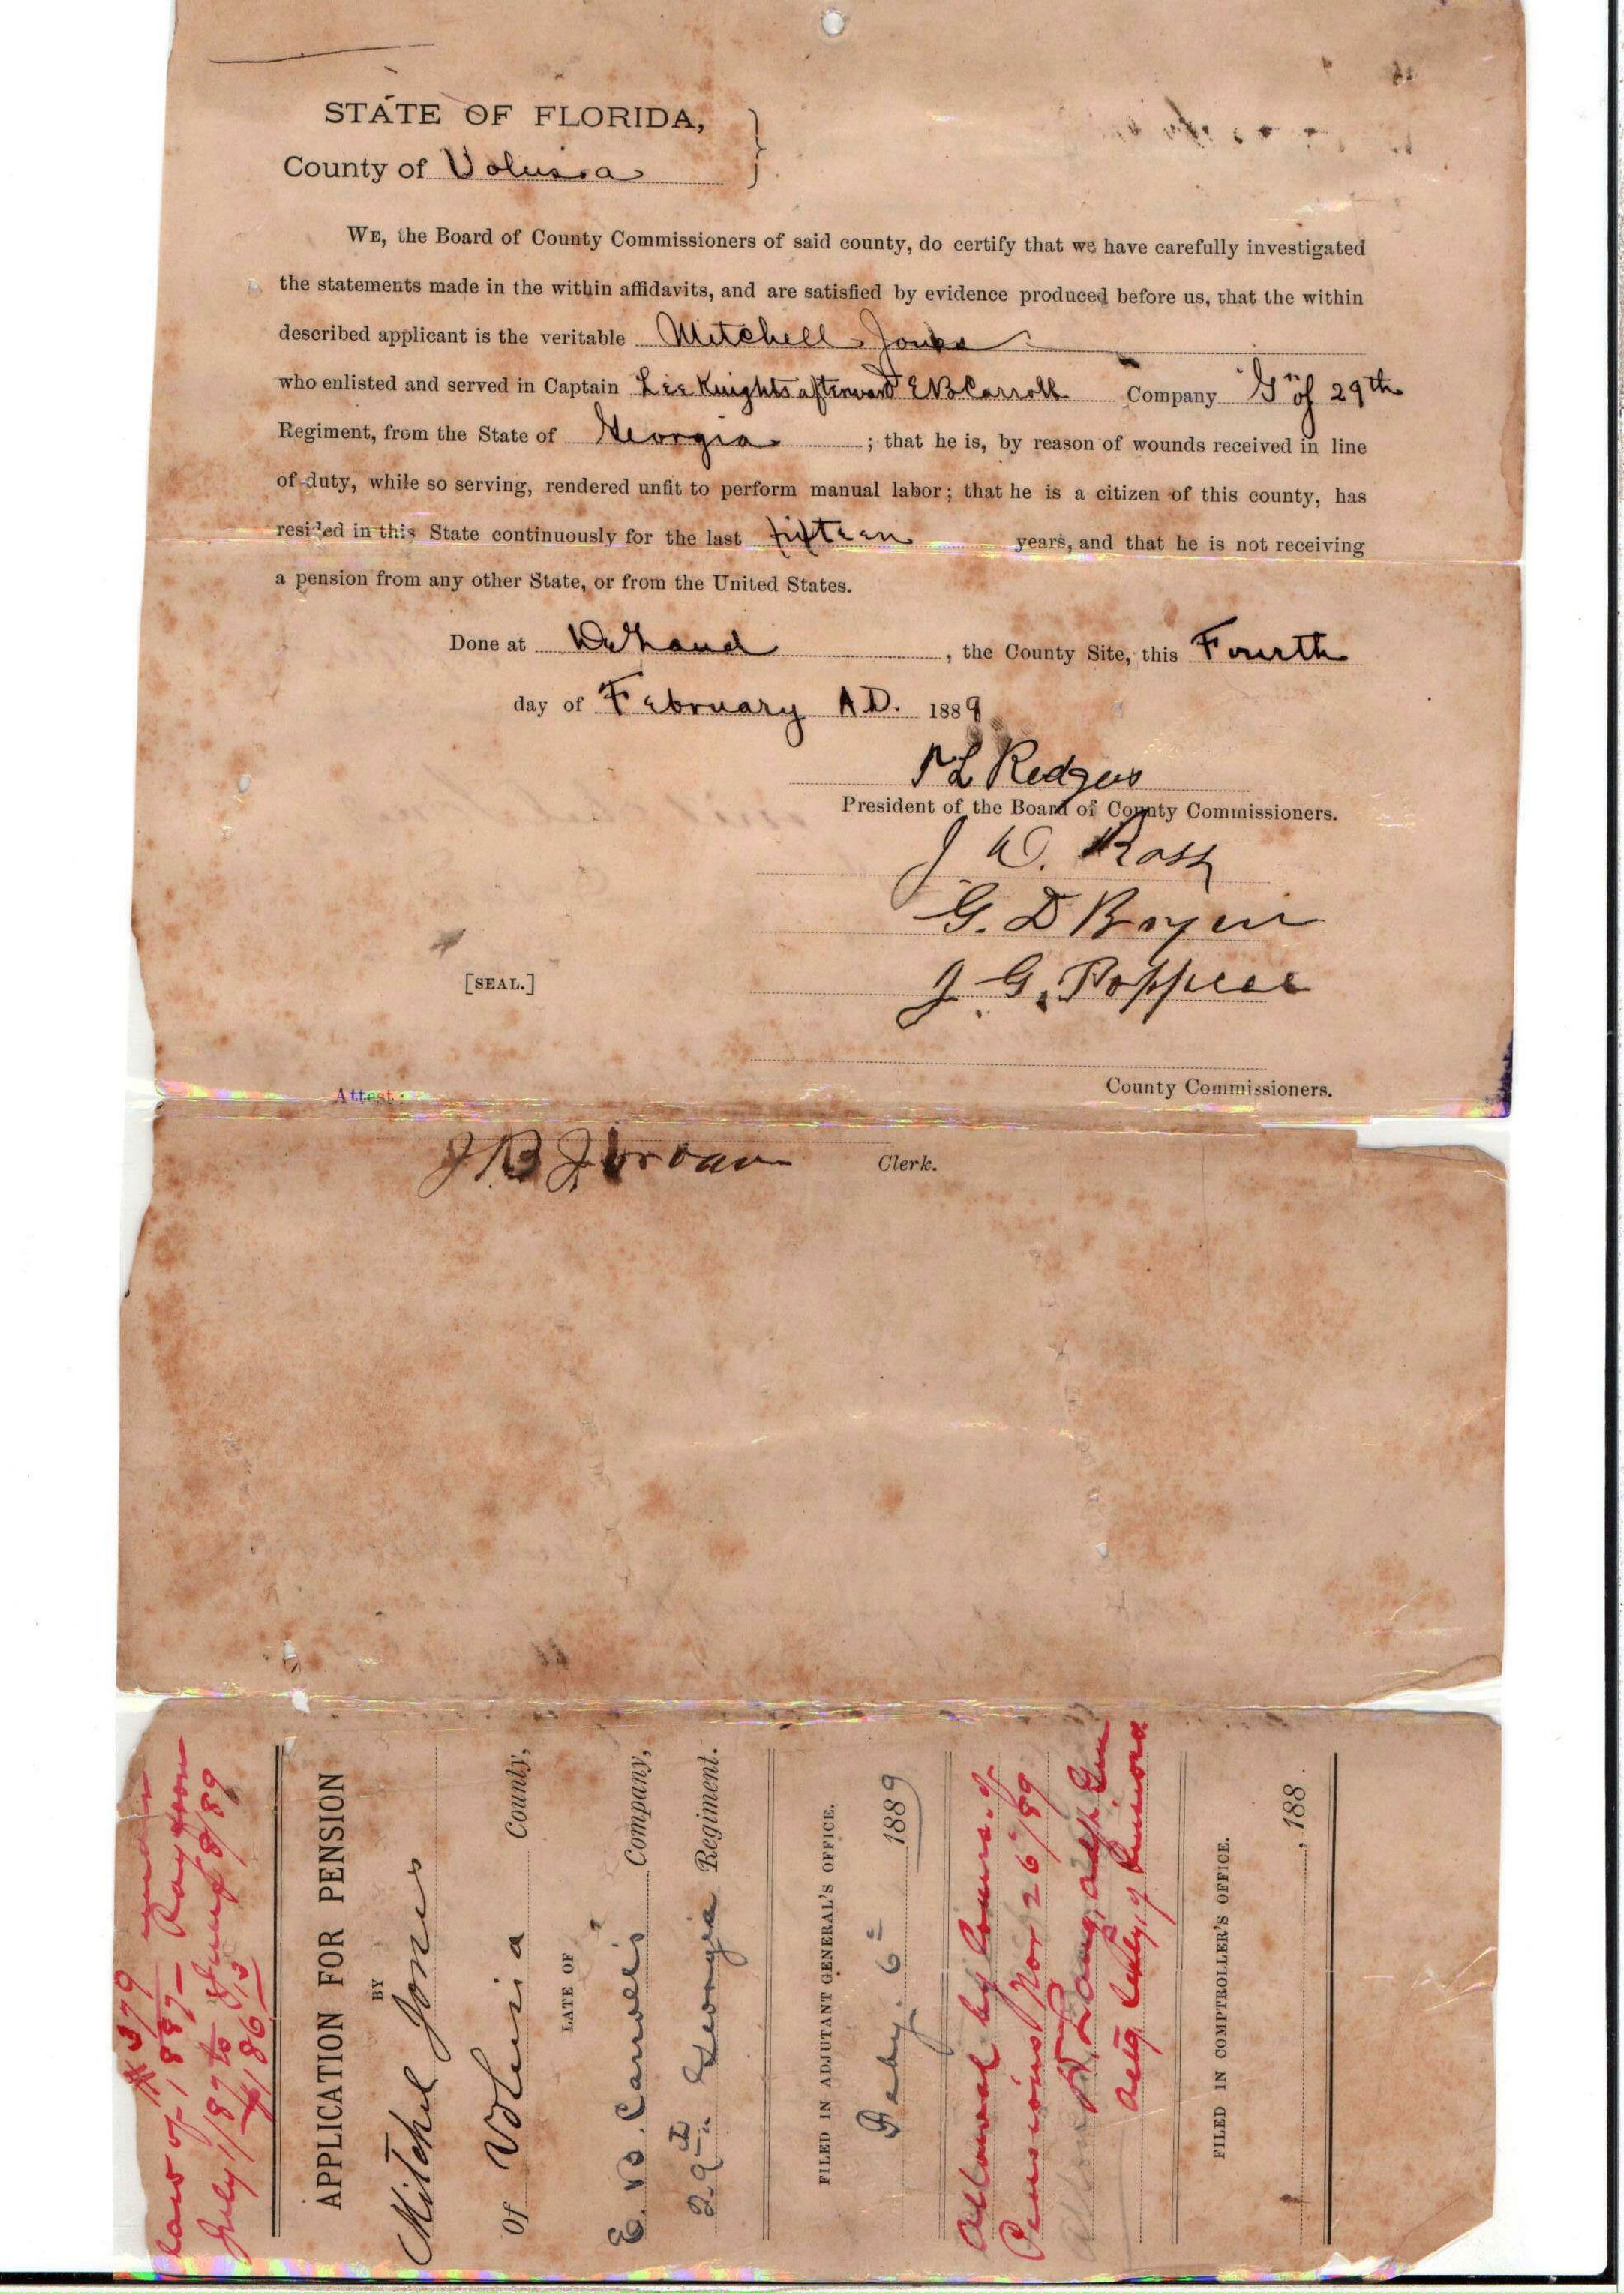 STATE OF FLORIDA,
County of Volusia
WE, the Board of County Commissioners of said county, do certify that we have carefully investigated
the statements made in the within affidavits, and are satisfied by evidence produced before us, that the within
described applicant is the veritable Mitchell Jones
who enlisted and served in Captain Lee Knights afterward E B Carroll Company "G" of 29th
Regiment, from the State of Georgia ; that he is, by reason of wounds received in line
of duty, while so serving, rendered unfit to perform manual labor; that he is a citizen of this county, has
resided in this State continuously for the last fifteen years, and that he is not receiving
a pension from any other State, or from the United States.
Done at DeLand , the County Site, this Fourth
day of February A.D. 1889
President of the Board of County Commissioners.
G. D
J. G.
[SEAL.]
County Commissioners.
Attest:
J B Jordan Clerk.
#379 under
law of 1887 -
July 1/87 to June 8/89
$186
APPLICATION FOR PENSION
BY
Mitchel Jones
Of Volusia County,
LATE OF
E. B. Carroll's Company,
29th Georgia Regiment.
FILED IN ADJUTANT GENERAL'S OFFICE.
Feby. 6" 1889
Allowed by Commrs. of
Pensions Nov 26"/89
D. Lang, Adjt. Gen
FILED IN COMPTROLLER'S OFFICE.
, 188 .